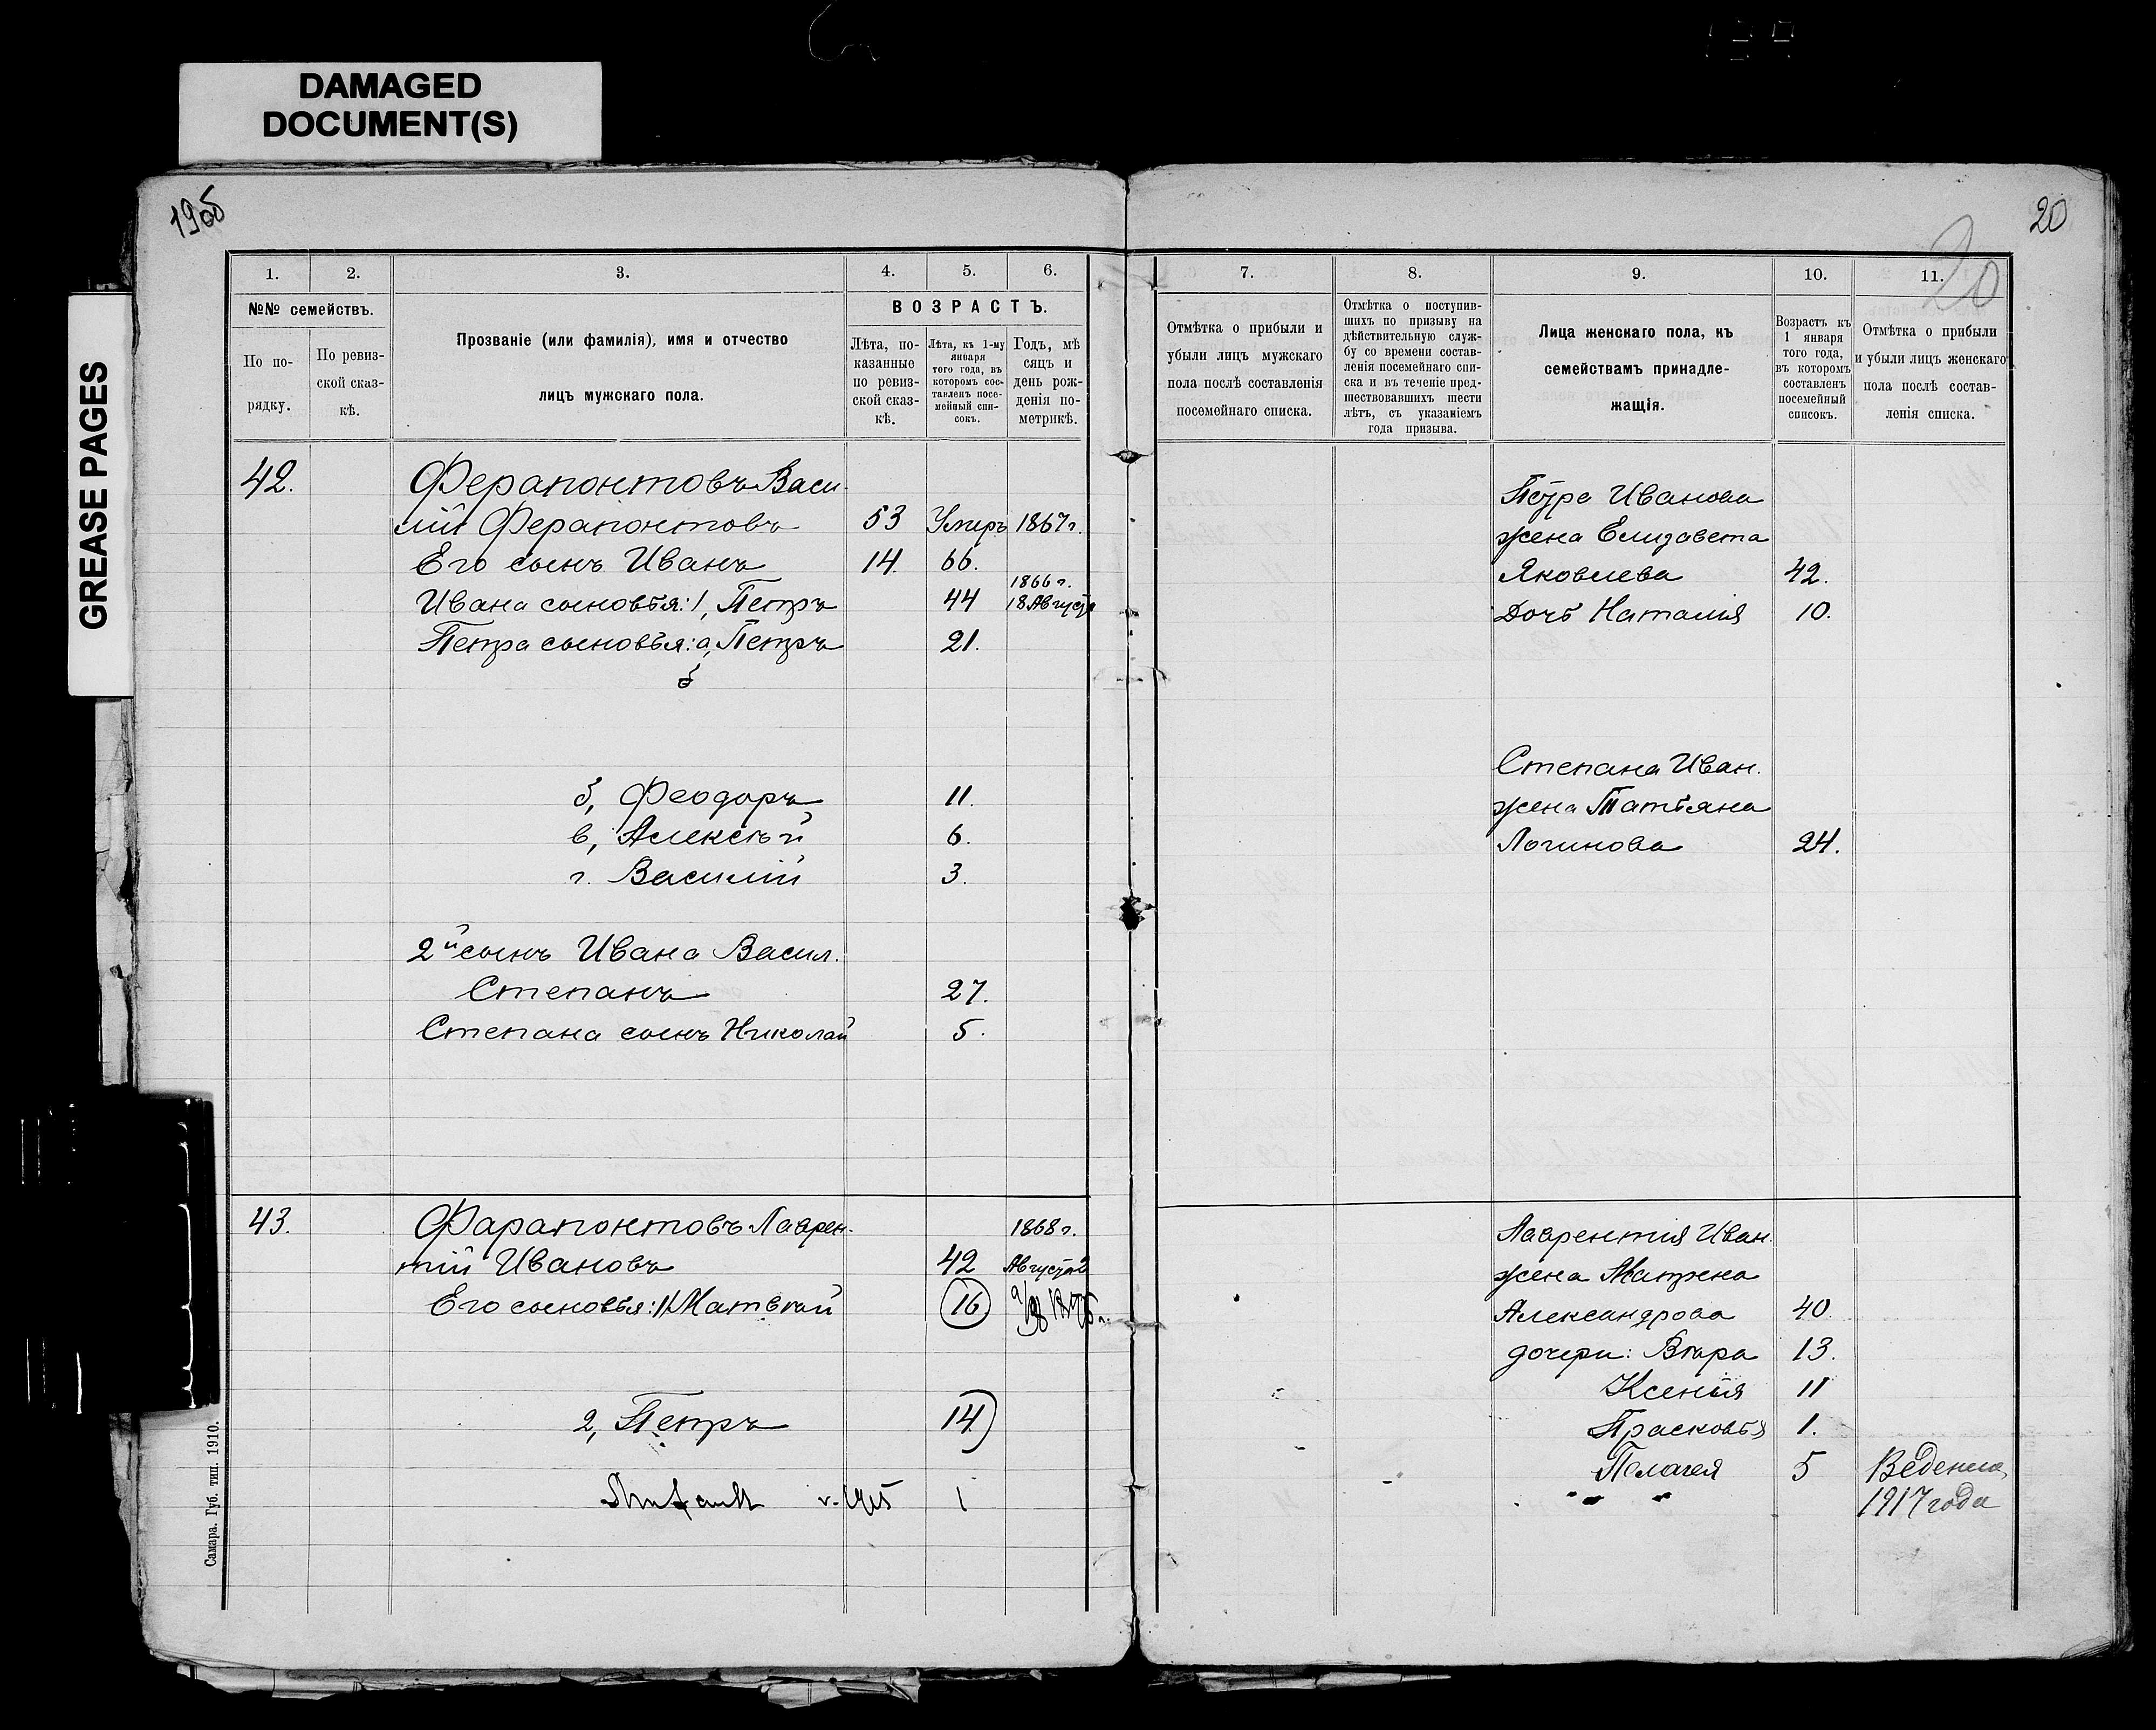 DAMAGED
DOCUMENT(S)
GREASE PAGES
19об
20
20
1. 2. 3. 4. 5. 6.
№№ семействъ.
По по-
рядку.
По ревиз-
ской сказ-
кѣ.
Прозваніе (или фамилія), имя и отчество
лицъ мужскаго пола.
ВОЗРАСТЪ.
Лѣта, по-
казанные
по ревиз-
ской сказ-
кѣ.
Лѣта, къ 1-му
января
того года, въ
которомъ сос-
тавленъ посе-
мейный спи-
сокъ.
Годъ, мѣ
сяцъ и
день рож-
денія по-
метрикѣ.
42. Ферапонтовъ Васи-
лій Ферапонтовъ 53 Умеръ 1867г.
Его сынъ Иванъ 14 66.
1866 г.
Ивана сыновья: 1, Петръ 44 18 Августа
Петра сыновья: а, Петръ 21.
б
б, Феодоръ 11.
в, Алексѣй 6.
г. Василій 3.
2й сынъ Ивана Васил.
Степанъ 27.
Степана сынъ Николай 5.
43. Фарапонтовъ Лаврен- 1868 г.
тій Ивановъ 42 Августа
Его сыновья: 1, Матвѣй 16
2, Петръ 14
1915 1
Самара. Губ. тип. 1910.
7. 8. 9. 10. 11.
Отмѣтка о прибыли и
убыли лицъ мужскаго
пола послѣ составленія
посемейнаго списка.
Отмѣтка о поступив-
шихъ по призыву на
дѣйствительную служ-
бу со времени состав-
ленія посемейнаго спи-
ска и въ теченіе пред-
шествовавшихъ шести
лѣтъ, съ указаніемъ
года призыва.
Лица женскаго пола, къ
семействамъ принадле-
жащія.
Возрастъ къ
1 января
того года,
въ которомъ
составленъ
посемейный
списокъ.
Отмѣтка о прибыли
и убыли лицъ женскаго
пола послѣ состав-
ленія списка.
Петра Иванова
жена Елизавета
Яковлева 42.
Дочь Наталія 10.
Степана Иван.
жена Татьяна
Логинова 24.
Лаврентія Иван.
жена Матрена
Александрова 40.
дочери: Вѣра 13.
Ксенія 11
Прасковья 1.
Пелагея 5
1917 года